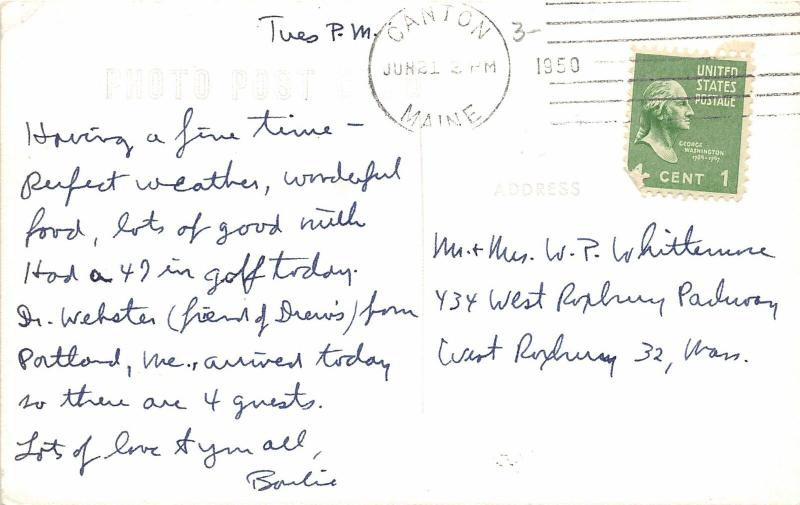 Tues P.M.
CANTON
JUN 21 2 PM
1950
MAINE
3-
UNITED
STATES
POSTAGE
GEORGE
WASHINGTON
1789-1797
CENT 1
PHOTO POST CARD
Having a fine time –
Perfect weather, wonderful
food, lots of good milk
Had a 47 in golf today.
Dr. Webster (friend of Drew's) from
Portland, Me., arrived today
so there are 4 guests.
Lots of love to you all,
ADDRESS
Mr. + Mrs. W. P. Whittemore
434 West Roxbury Parkway
West Roxbury 32, Mass.